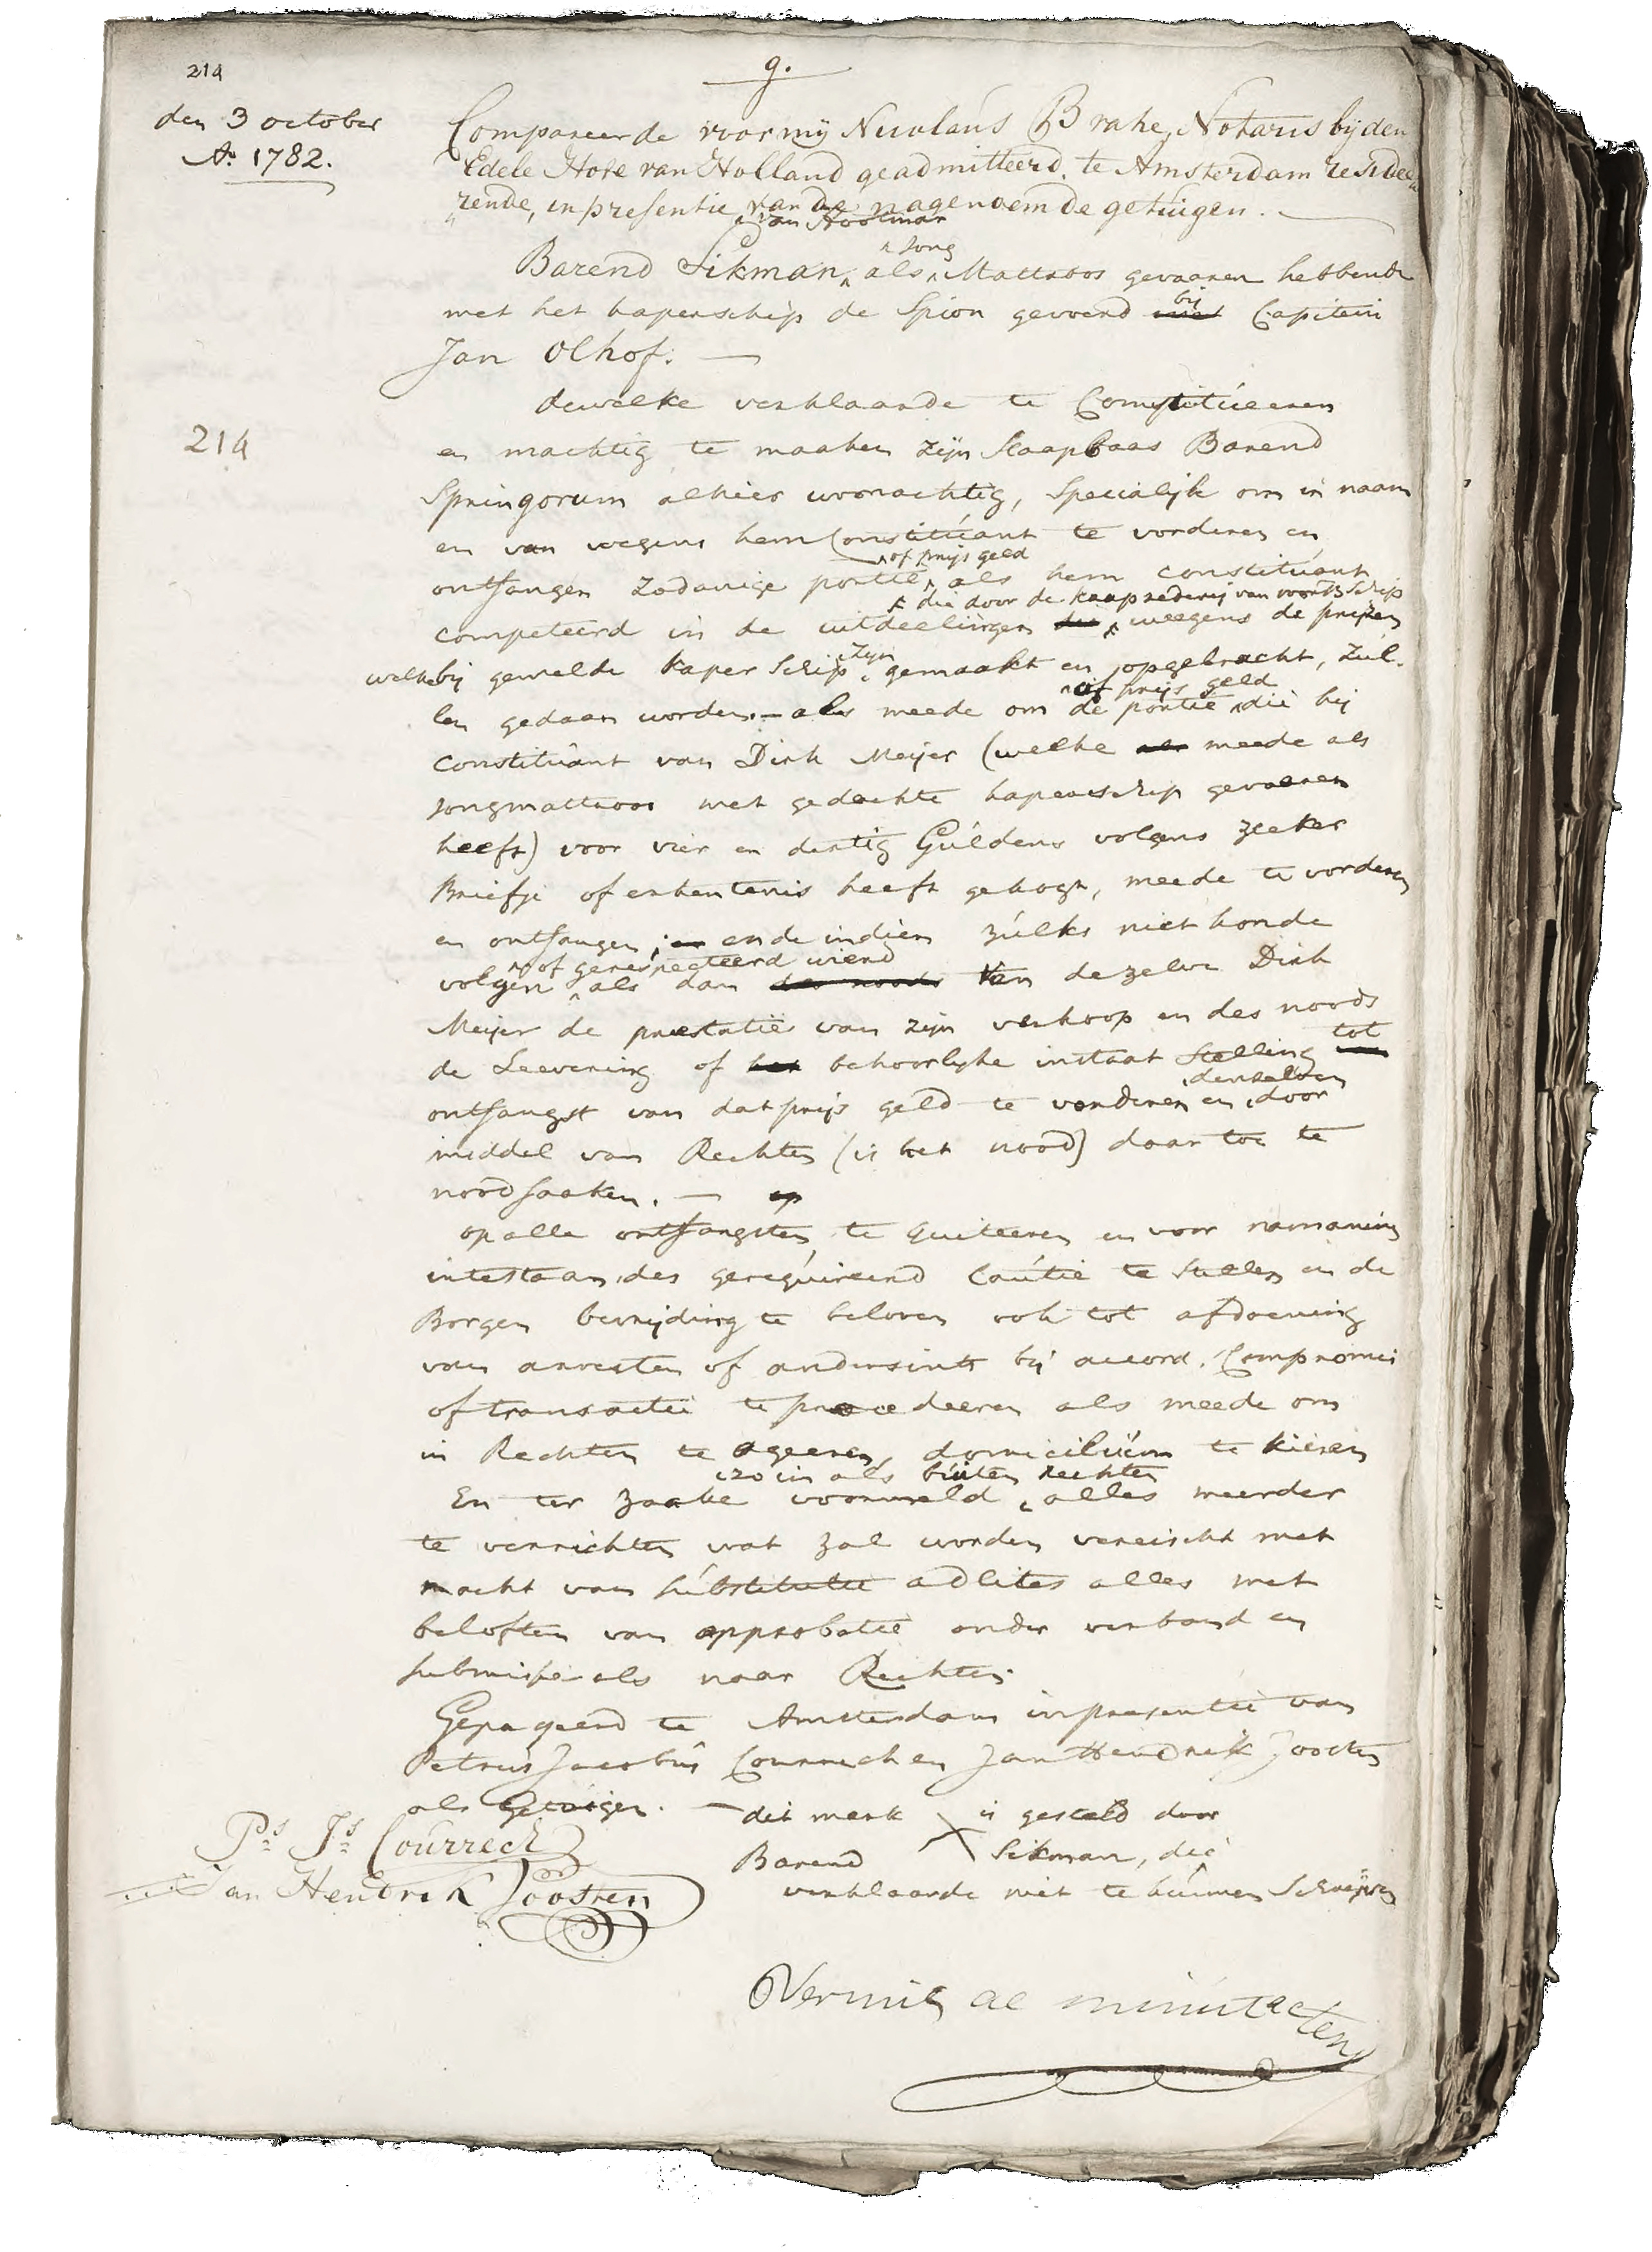 214
g.
den 3 october
Ao. 1782.
Compareerde voor mij Nicolaús Brahe, Notaris bij den
Edele Hove van Holland geadmitteerd, te Amsterdam resideer
rende, in presentie van de nagenoemde getuigen.
van
Jong
Barend Sikman, als Mattroos gevaaren hebbende
met het kaperschip de Spion gevoerd met bij Capitein
Jan Olhof.
dewelke verklaarde te Constitúeeren
en machtig te maaken zijn Slaapbaas Barend
214
Springorum alhier woonachtig, Specialijk om in naam
en van wegens hem Constitúant te vorderen en
of prijs geld
ontfangen zodanige portie, als hem constitúant
die door de kaaprederij van voors. Schip
competeerd in de uitdeelingen die weegens de prijsen
welke bij gemelde kaper Schip zijn gemaakt en opgebracht, zul-
of prijs geld
len gedaan worden. - als meede om de portie die hij
Constitúant van Dirk Meijer (welke als meede als
jongmattroos met gedachte kaperschip gevaaren
heeft) voor vier en dertig Gúldens volgens zeeker
Briefje of erkentenis heeft gekogt, meede te vorderen
en ontfangen; en ende indien zúlks niet konde
of gerespecteerd wierd
volgen als dan des noods van dezelve Dirk
Meijer de praestatie van zijn verkoop en des noods
de Leevering of het behoorlijke instaat Stelling tot
ontfangst van dat prijs geld te vorderen en denzelven door
middel van Rechten (is het nood) daar toe te
noodsaaken. — op
op alle ontfangsten te quiteeren en voor namaning
intestaan, des gerequireerd Caútie te Stellen en de
Borgen bevrijding te beloven ook tot afdoening
van arresten of andersints bij accord, Compromis
of transactie te procedeeren als meede om
in Rechten te ageeren, domiciliúm te kiesen
zo in als búiten rechten
En ter zaake voormeld, alles meerder
te verrichten wat zal worden vereischt met
macht van súbstitutie ad lites alles met
beloften van approbatie onder verband en
submissie als naar Rechten.
Gepasseerd te Amsterdam in praesentie van
Petrus Jacobús Courrech en Jan Hendrik Joosten
als Getúigen. — dit merk X is gesteld door
Barend Sikman, die
verklaarde niet te kúnnen Schrijven
Ps. Js. Coúrrech
Jan Hendrik Joosten